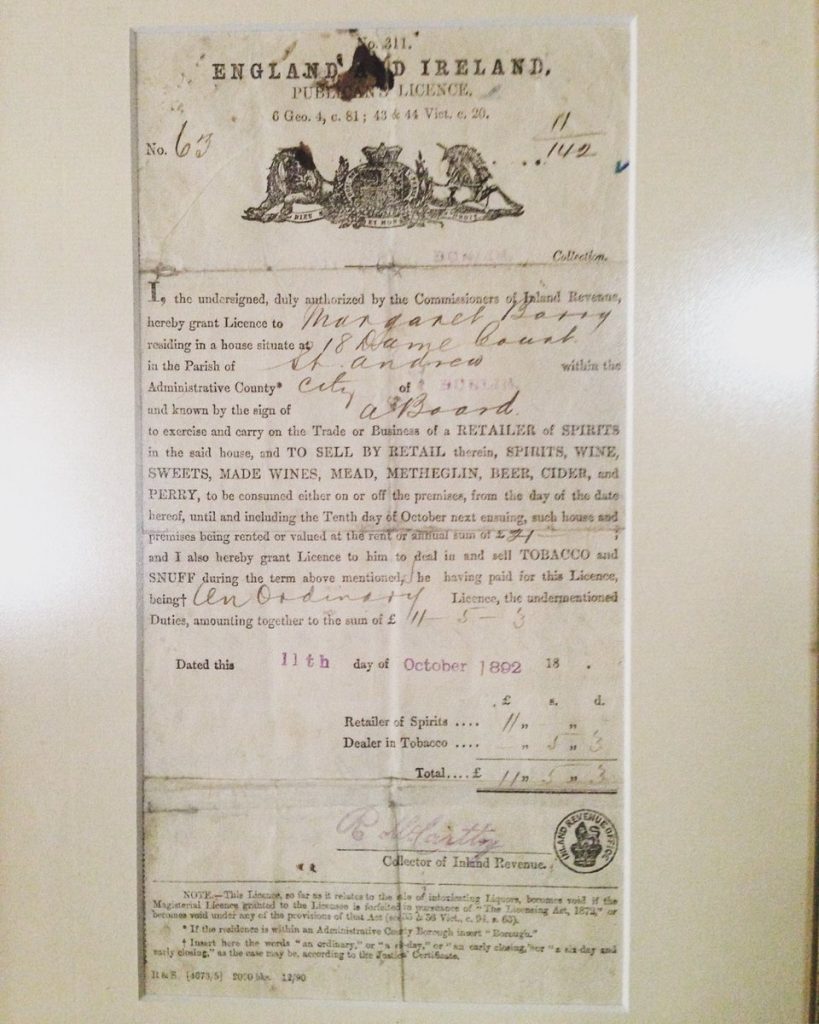 No. 311.
ENGLAND AND IRELAND,
PUBLICAN'S LICENCE,
6 Geo. 4, c. 81; 43 & 44 Vict. c. 20.
No. 63
11
142
DIEU ET MON DROIT
Collection.
I, the undersigned, duly authorized by the Commissioners of Inland Revenue,
hereby grant Licence to Margaret Barry
residing in a house situate at 18 Dame Court
in the Parish of St. Andrew within the
Administrative County* City of
and known by the sign of a Board.
to exercise and carry on the Trade or Business of a RETAILER of SPIRITS
in the said house, and TO SELL BY RETAIL therein, SPIRITS, WINE,
SWEETS, MADE WINES, MEAD, METHEGLIN, BEER, CIDER, and
PERRY, to be consumed either on or off the premises, from the day of the date
hereof, until and including the Tenth day of October next ensuing, such house and
premises being rented or valued at the rent or annual sum of £ ;
and I also hereby grant Licence to him to deal in and sell TOBACCO and
SNUFF during the term above mentioned, he having paid for this Licence,
being† An Ordinary Licence, the undermentioned
Duties, amounting together to the sum of £ 11 - 5 - 3
Dated this 11th day of October 1892 18 .
£ s. d.
Retailer of Spirits .... 11 " "
Dealer in Tobacco .... " 5 " 3
Total.... £ 11 " 5 " 3
Collector of Inland Revenue.
INLAND REVENUE OFFICE
NOTE.—This Licence, so far as it relates to the sale of intoxicating Liquors, becomes void if the
Magisterial Licence granted to the Licensee is forfeited in pursuance of "The Licensing Act, 1872," or
becomes void under any of the provisions of that Act (see 35 & 36 Vict., c. 94, s. 63).
* If the residence is within an Administrative County Borough insert "Borough."
† Insert here the words "an ordinary," or "a six-day," or "an early closing," or "a six-day and
early closing," as the case may be, according to the Justices' Certificate.
B & S. [4073/5] 2000 bks. 12/90